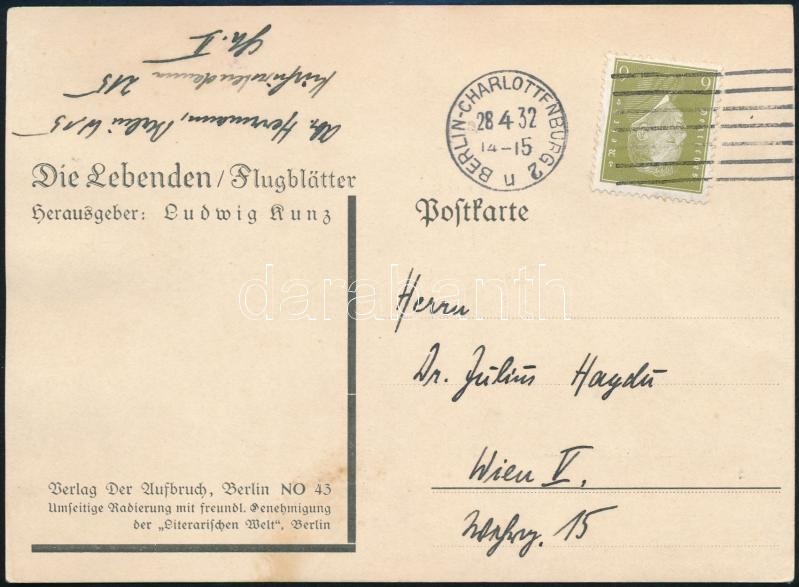 Dr. Herrmann, Berlin W 15
Kurfürstendamm 215
Die Lebenden / Flugblätter
Herausgeber: Ludwig Kunz
BERLIN-CHARLOTTENBURG 2
n
28.4.32
14-15
6 6
Deutsches Reich
Postkarte
Herrn
Dr. Julius Haydu
Wien V.
Wehrg. 15
Verlag Der Aufbruch, Berlin NO 43
Umseitige Radierung mit freundl. Genehmigung
der „Literarischen Welt“, Berlin
darabanth